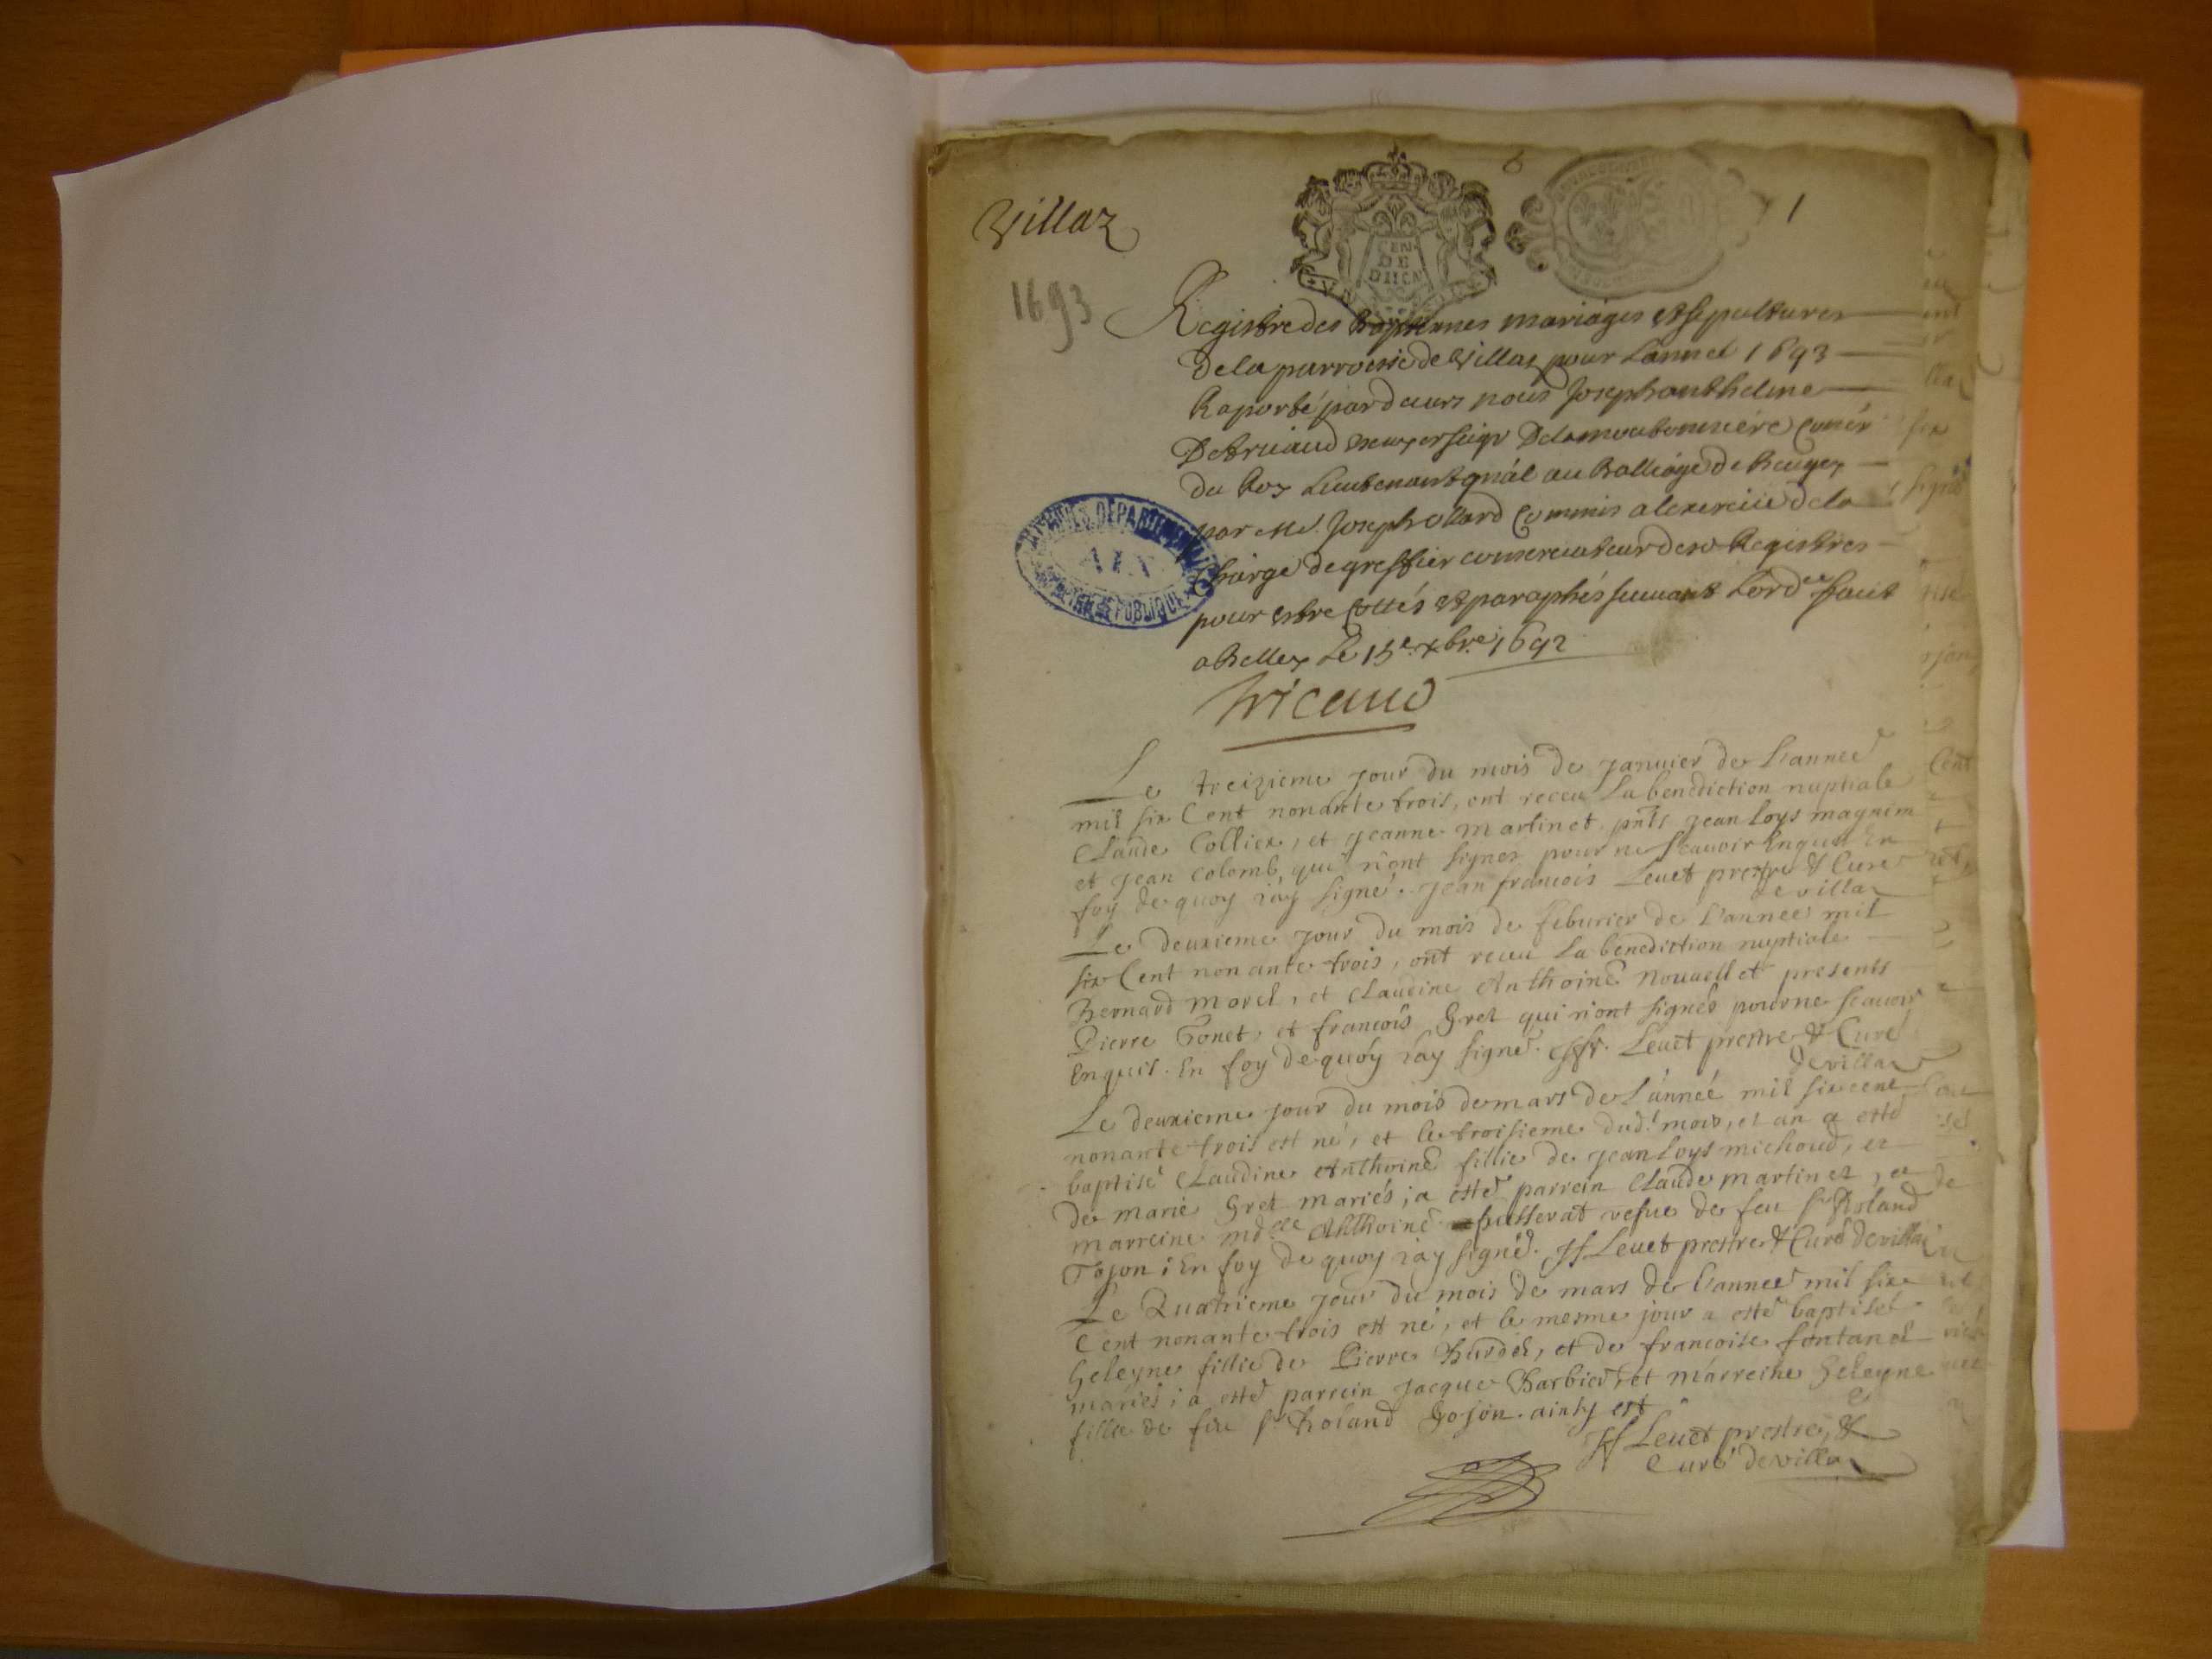 Villaz
1
1693
GEN
DE
ARCHIVES DEPARTEMENTALES
AIN
PUBLIQUE
Registre des Baptemes mariages et sepultures
De la parroisse de Villaz pour Lannee 1693
Raporté pardeuers nous Joseph anthelme
Detricaud Escuyer seigr Dela
du Roy Lieutenant gnâl au Balliage de Beugey
par Me. Joseph ollard Commis a lexercice de la
Charge de greffier conservateur desd Registres
pour estre Cottés et paraphés suiuant Lord.ce fait
a Belley Le 15e. xbre 1692
Tricaud
Le treizieme jour du mois de januier de L'annee
mil six Cent nonante trois, ont receu La benediction nuptiale
Claude Collier, et jeanne martinet, pnts jean Loys magnin
et jean Colomb, qui n'ont signes pour ne scauoir Enquis En
foy de quoy i'ay signé. jean francois Leuet prestre & Cure
de villaz
Le deuxieme jour du mois de feburier de L'annee mil
six Cent nonante trois, ont receu La benediction nuptiale
Bernard morel, et Claudine Anthoine nouuellet presents
Pierre Tonet, et francois Gret qui n'ont signés pour ne scauoir
Enquis. En foy de quoy i'ay signé. Jfr. Leuet prestre & Curé
de villaz
Le deuxieme jour du mois de mars de L'année mil six cent
nonante trois est né, et le troisieme dud.t mois, et an a esté
baptisé Claudine Anthoine fillie de jean Loys michoud, et
de marie Gret mariés; a esté parrein Claude martinet, et
marreine md.lle Anthoine passerat vefue de feu Sr Roland
Gojon; En foy de quoy i'ay signé. Jf Leuet prestre & Curé de villaz
Le Quatrieme jour du mois de mars de L'annee mil six
Cent nonante trois est né, et le mesme jour a esté baptisé
heleyne fillie de Pierre Burdet, et de francoise fontanel
mariés; a esté parrein jacque Barbier, et marreine heleyne
fillie de feu Sr Roland Gojon. ainsy est
Jf Leuet prestre, &
Curé de villaz